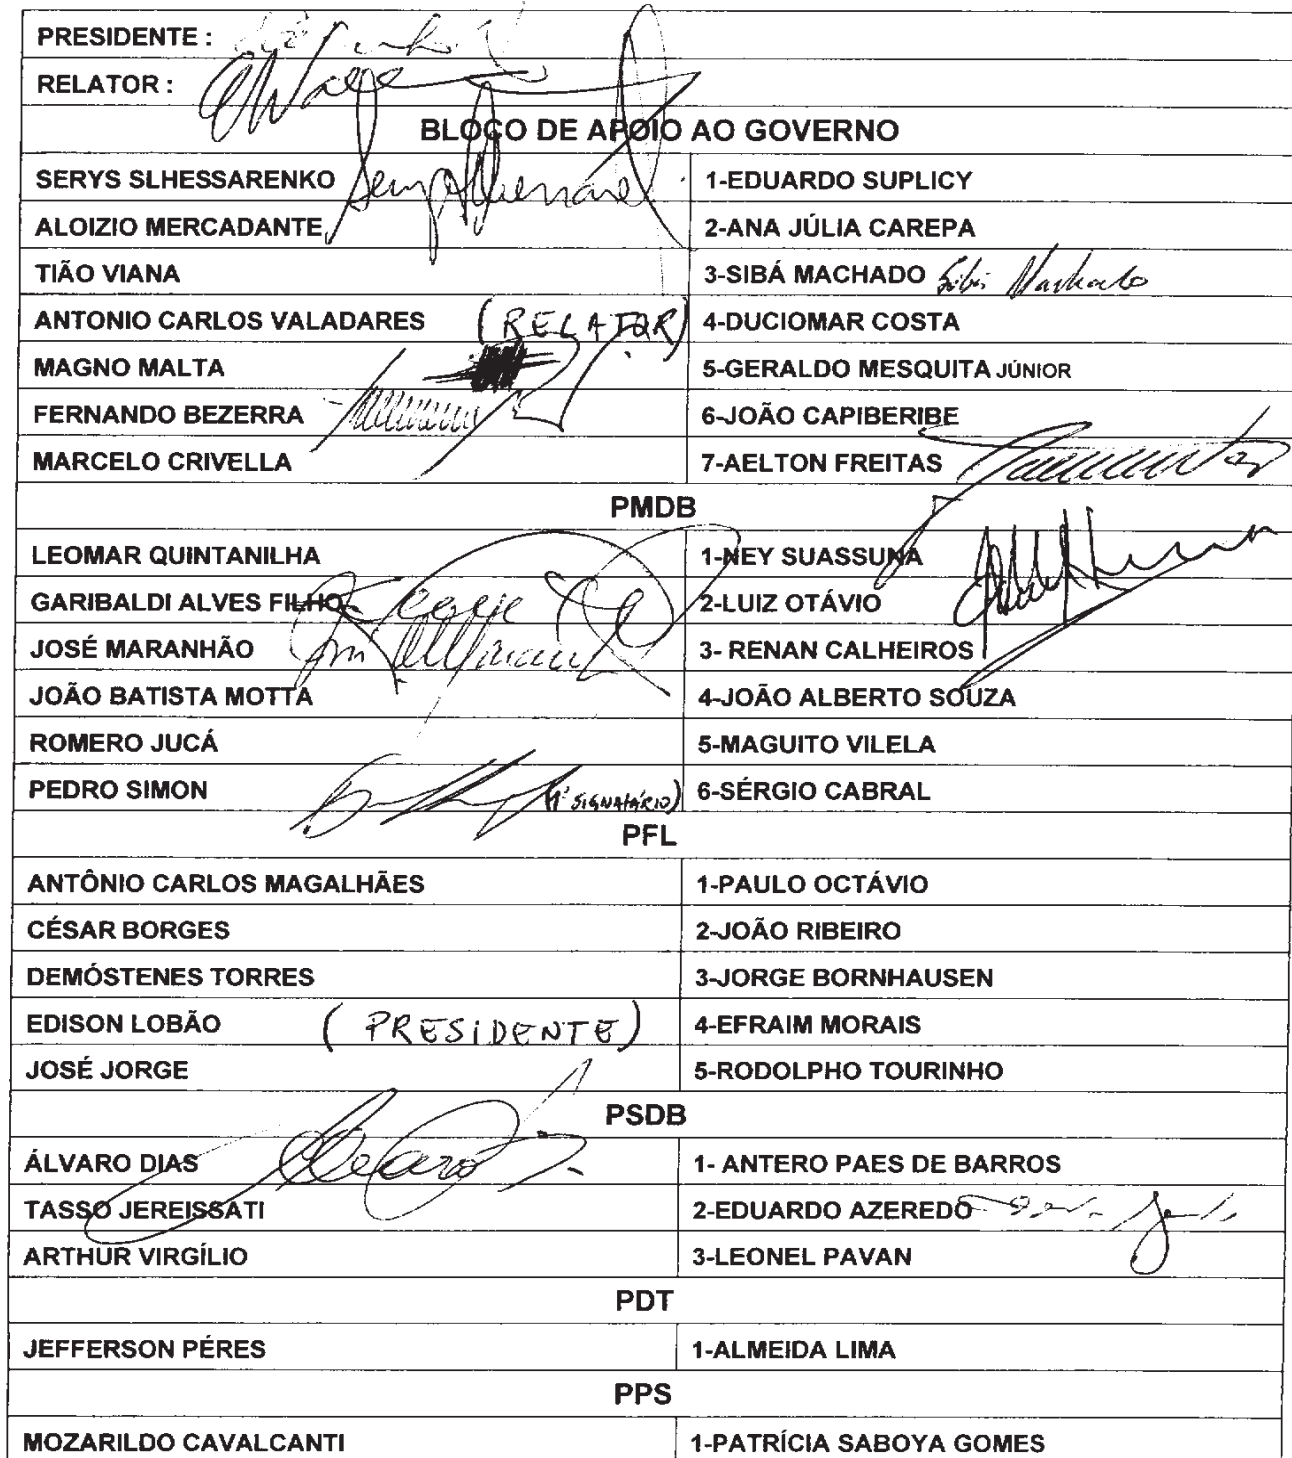 PRESIDENTE :
RELATOR :
BLOCO DE APOIO AO GOVERNO
SERYS SLHESSARENKO 1-EDUARDO SUPLICY
ALOIZIO MERCADANTE 2-ANA JÚLIA CAREPA
TIÃO VIANA 3-SIBÁ MACHADO Sibá Machado
ANTONIO CARLOS VALADARES (RELATOR) 4-DUCIOMAR COSTA
MAGNO MALTA 5-GERALDO MESQUITA JÚNIOR
FERNANDO BEZERRA 6-JOÃO CAPIBERIBE
MARCELO CRIVELLA 7-AELTON FREITAS
PMDB
LEOMAR QUINTANILHA 1-NEY SUASSUNA
GARIBALDI ALVES FILHO 2-LUIZ OTÁVIO
JOSÉ MARANHÃO 3- RENAN CALHEIROS
JOÃO BATISTA MOTTA 4-JOÃO ALBERTO SOUZA
ROMERO JUCÁ 5-MAGUITO VILELA
PEDRO SIMON (1º SIGNATÁRIO) 6-SÉRGIO CABRAL
PFL
ANTÔNIO CARLOS MAGALHÃES 1-PAULO OCTÁVIO
CÉSAR BORGES 2-JOÃO RIBEIRO
DEMÓSTENES TORRES 3-JORGE BORNHAUSEN
EDISON LOBÃO (PRESIDENTE) 4-EFRAIM MORAIS
JOSÉ JORGE 5-RODOLPHO TOURINHO
PSDB
ÁLVARO DIAS 1- ANTERO PAES DE BARROS
TASSO JEREISSATI 2-EDUARDO AZEREDO
ARTHUR VIRGÍLIO 3-LEONEL PAVAN
PDT
JEFFERSON PÉRES 1-ALMEIDA LIMA
PPS
MOZARILDO CAVALCANTI 1-PATRÍCIA SABOYA GOMES